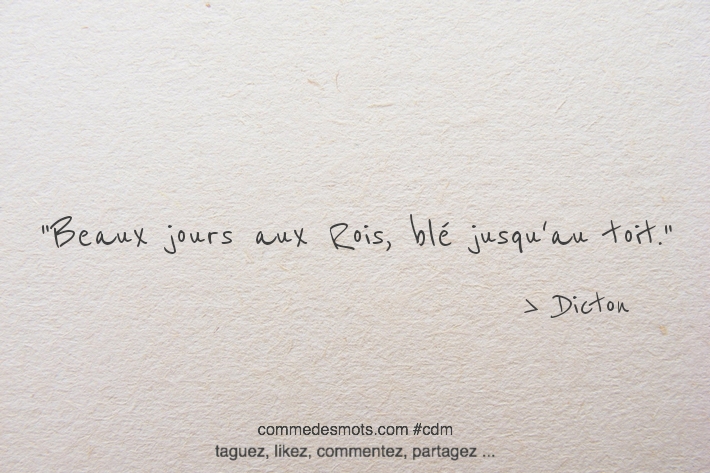 "Beaux jours aux Rois, blé jusqu'au toit."
> Dicton
commedesmots.com #cdm
taguez, likez, commentez, partagez ...